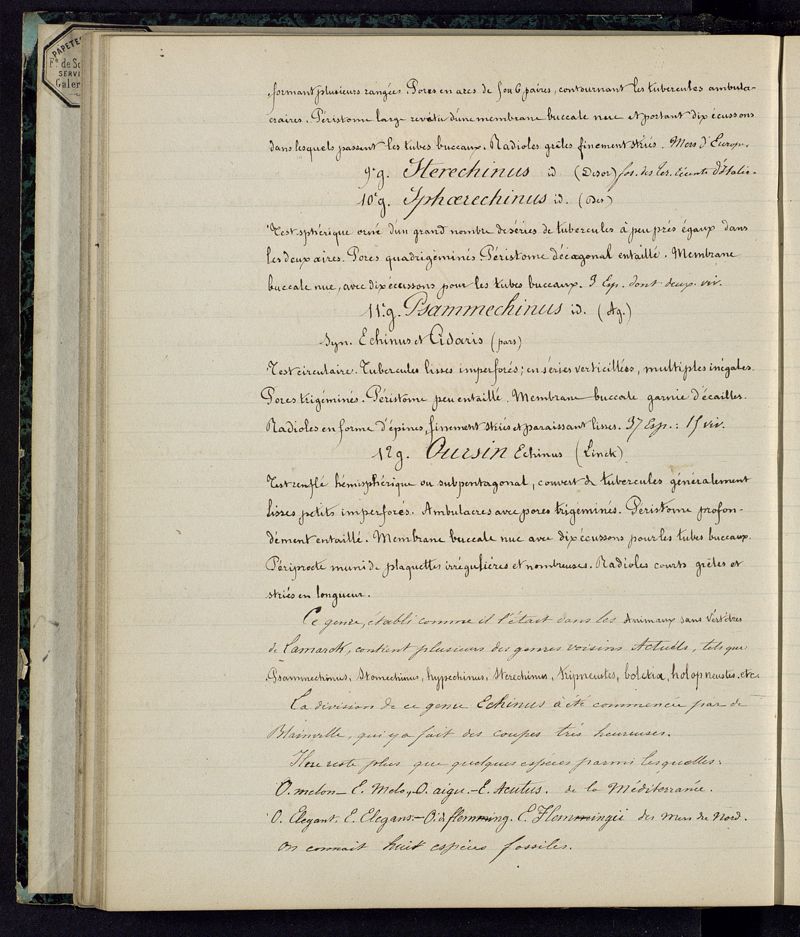 PAPETE
Fs de Sc
SERVI
Galer
formant plusieurs rangées. Pores en arcs de 5 ou 6 paires, contournant les tubercules ambula-
craires. Péristome large revêtu d'une membrane buccale nue et portant dix écussons
dans lesquels passent les tubes buccaux. Radioles grêles finement striés. Mers d'Europe.
9e g. Sterechinus id (Desor) fos. des ter. récents d'Italie.
10e g. Sphœrechinus id. (Des)
Test sphérique orné d'un grand nombre de séries de tubercules à peu près égaux dans
les deux aires. Pores quadrigéminés. Péristome décagonal entaillé. Membrane
buccale nue, avec dix écussons pour les tubes buccaux. 3 Esp. dont deux viv.
11e g. Psammechinus id. (Ag.)
Syn. Echinus et Cidaris (pars)
Test circulaire. Tubercules lisses imperforés; en séries verticillées, multiples inégales.
Pores trigéminés. Péristome peu entaillé. Membrane buccale garnie d'écailles.
Radioles en forme d'épines, finement striés et paraissant lisses. 37 Esp.: 15 viv.
12 g. Oursin Echinus (Linck)
Test renflé hémisphérique ou subpentagonal, couvert de tubercules généralement
lisses petits imperforés. Ambulacres avec pores trigéminés. Péristome profon-
dément entaillé. Membrane buccale nue avec dix écussons pour les tubes buccaux.
Périprocte muni de plaquettes irrégulières et nombreuses. Radioles courts grêles et
striés en longueur.
Ce genre, établi comme il l'était dans les Animaux sans Vertèbres
de Lamarck, contient plusieurs des genres voisins Actuels, tels que
Psammechinus, Stomechinus, hypechinus, Sterechinus, tripneustes, boletia, holopneustes. etc
La division de ce genre Echinus a été commencée par de
Blainville, qui y a fait des coupes très heureuses.
Il ne reste plus que quelques espèces parmi lesquelles:
O. melon — E. Melo, — O. aigu. — E. Acutus. de la Méditerranée.
O. Elegant. E. Elegans. — O. de flemming. E. Flemmingii des Mers du Nord.
On connaît huit espèces fossiles.